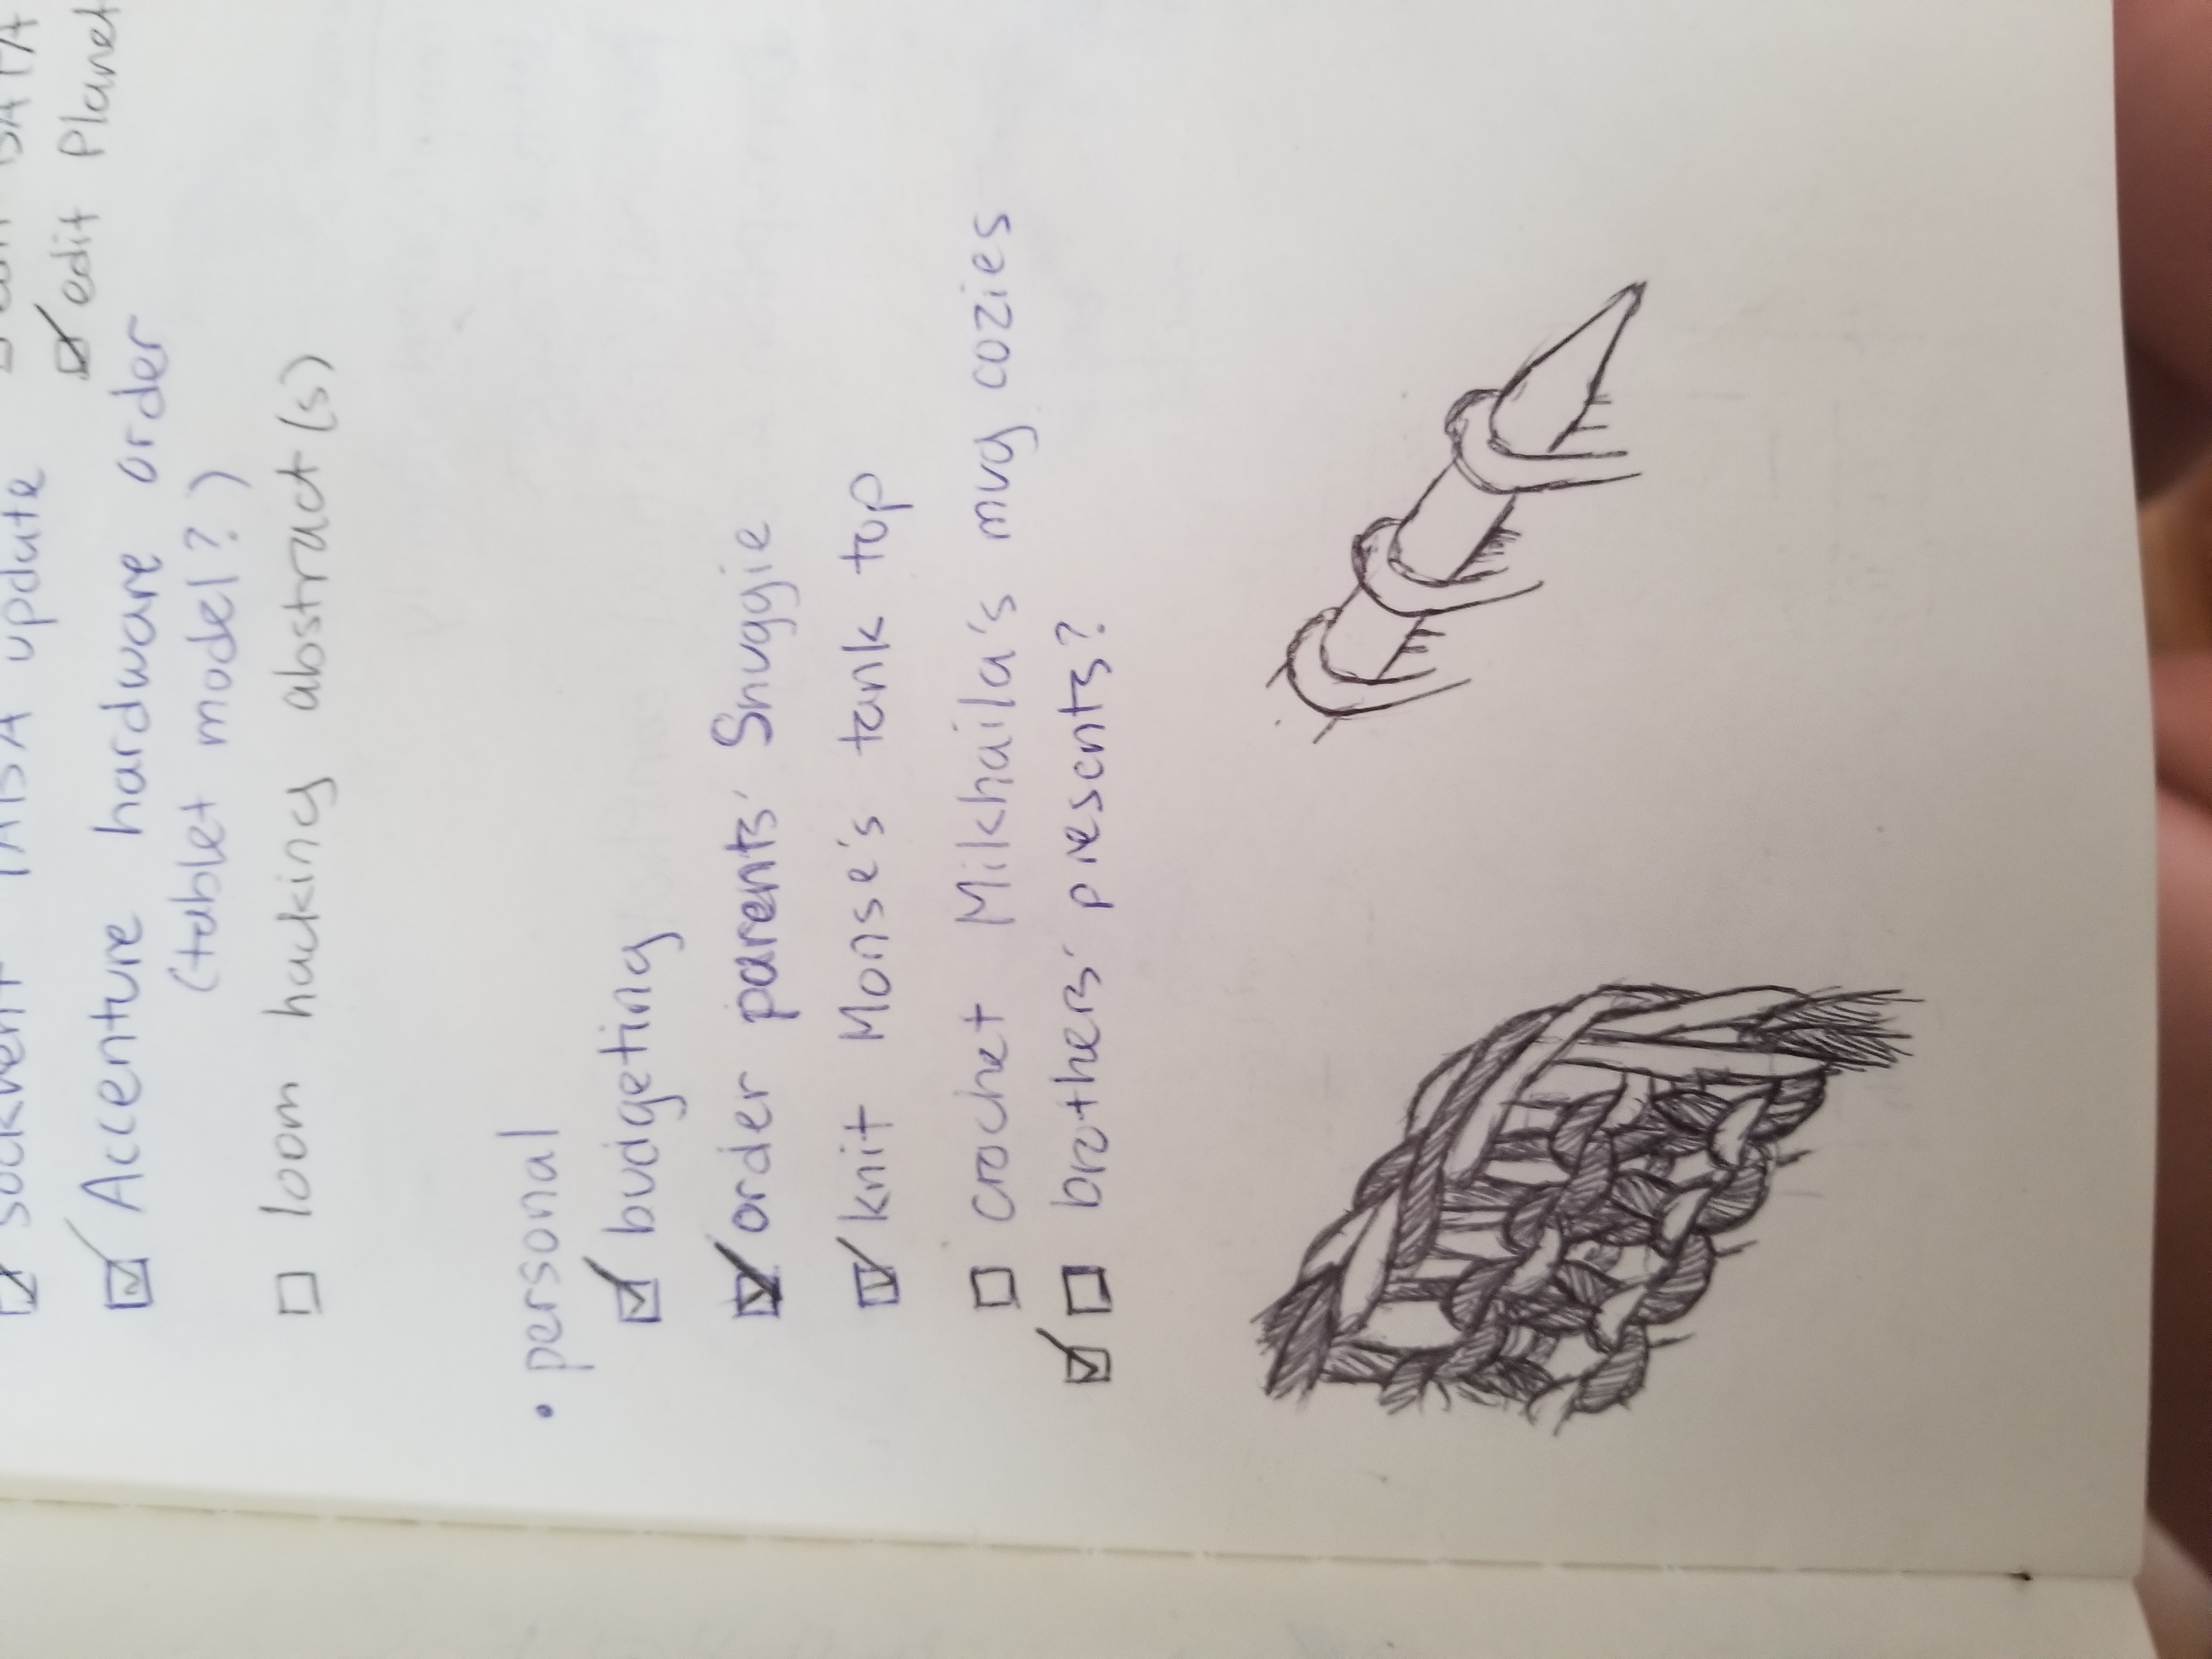 update
edit Planet
Accenture hardware order
(tablet model?)
loom hacking abstract(s)
• personal
budgeting
order parents' Snuggie
knit Monse's tank top
crochet Mikhaila's mug cozies
brothers' presents?